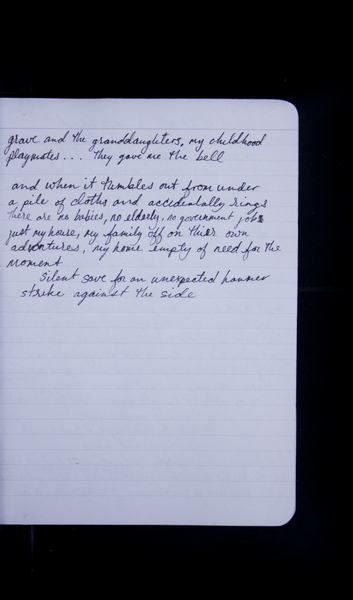 grave and the granddaughters, my childhood
playmates... they gave me the bell
and when it tumbles out from under
a pile of cloths and accidentally rings
there are no babies, no elderly, no government jobs
just my house, my family off on thier own
adventures, my home empty of need for the
moment
Silent save for an unexpected hammer
strike against the side